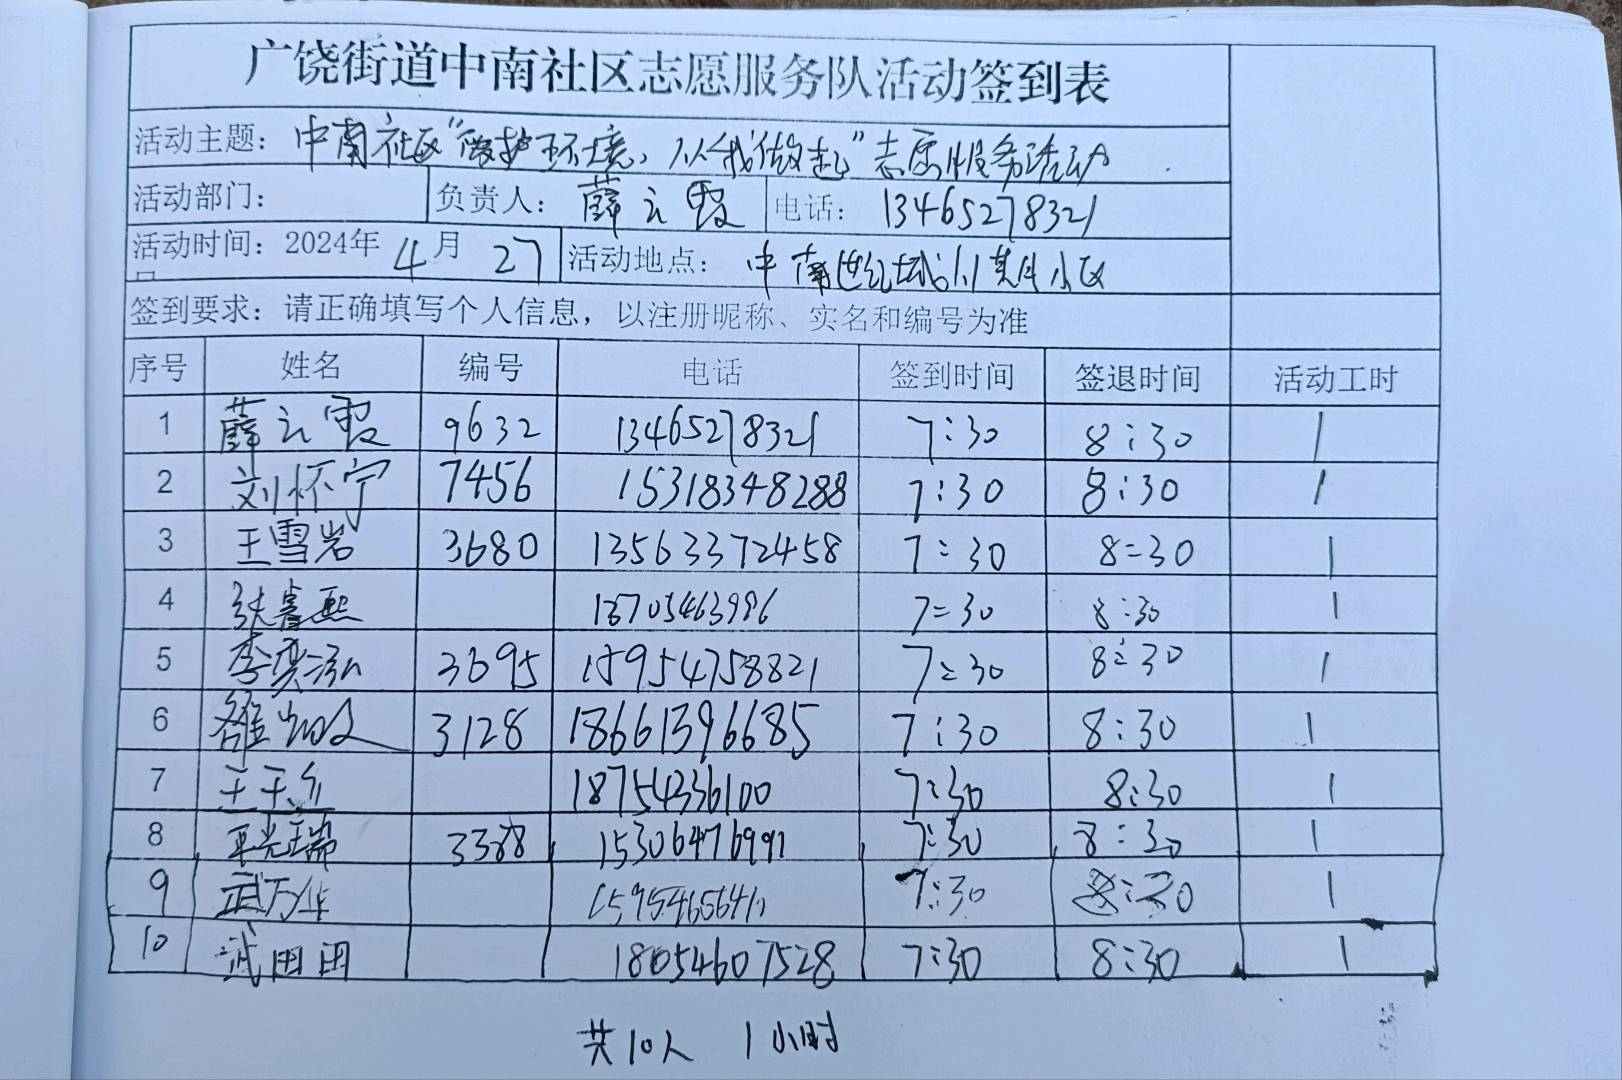 广饶街道中南社区志愿服务队活动签到表
活动主题：中南社区"爱护环境、从我做起"志愿服务活动
活动部门： 负责人：薛云霞 电话：13465278321
活动时间：2024年4月27 活动地点：中南世纪城 小区
签到要求：请正确填写个人信息，以注册昵称、实名和编号为准
序号 姓名 编号 电话 签到时间 签退时间 活动工时
1 薛云霞 9632 13465278321 7:30 8:30 1
2 刘怀宁 7456 15318348288 7:30 8:30 1
3 王雪岩 3680 13563372458 7:30 8:30 1
4 7:30 8:30 1
5 李奕泓 3695 15954758821 7:30 8:30 1
6 3128 18661396685 7:30 8:30 1
7 18754336100 7:30 8:30 1
8 3388 15306476991 7:30 8:30 1
9 武万华 7:30 8:30 1
10 武田田 18054607528 7:30 8:30 1
共10人 1小时